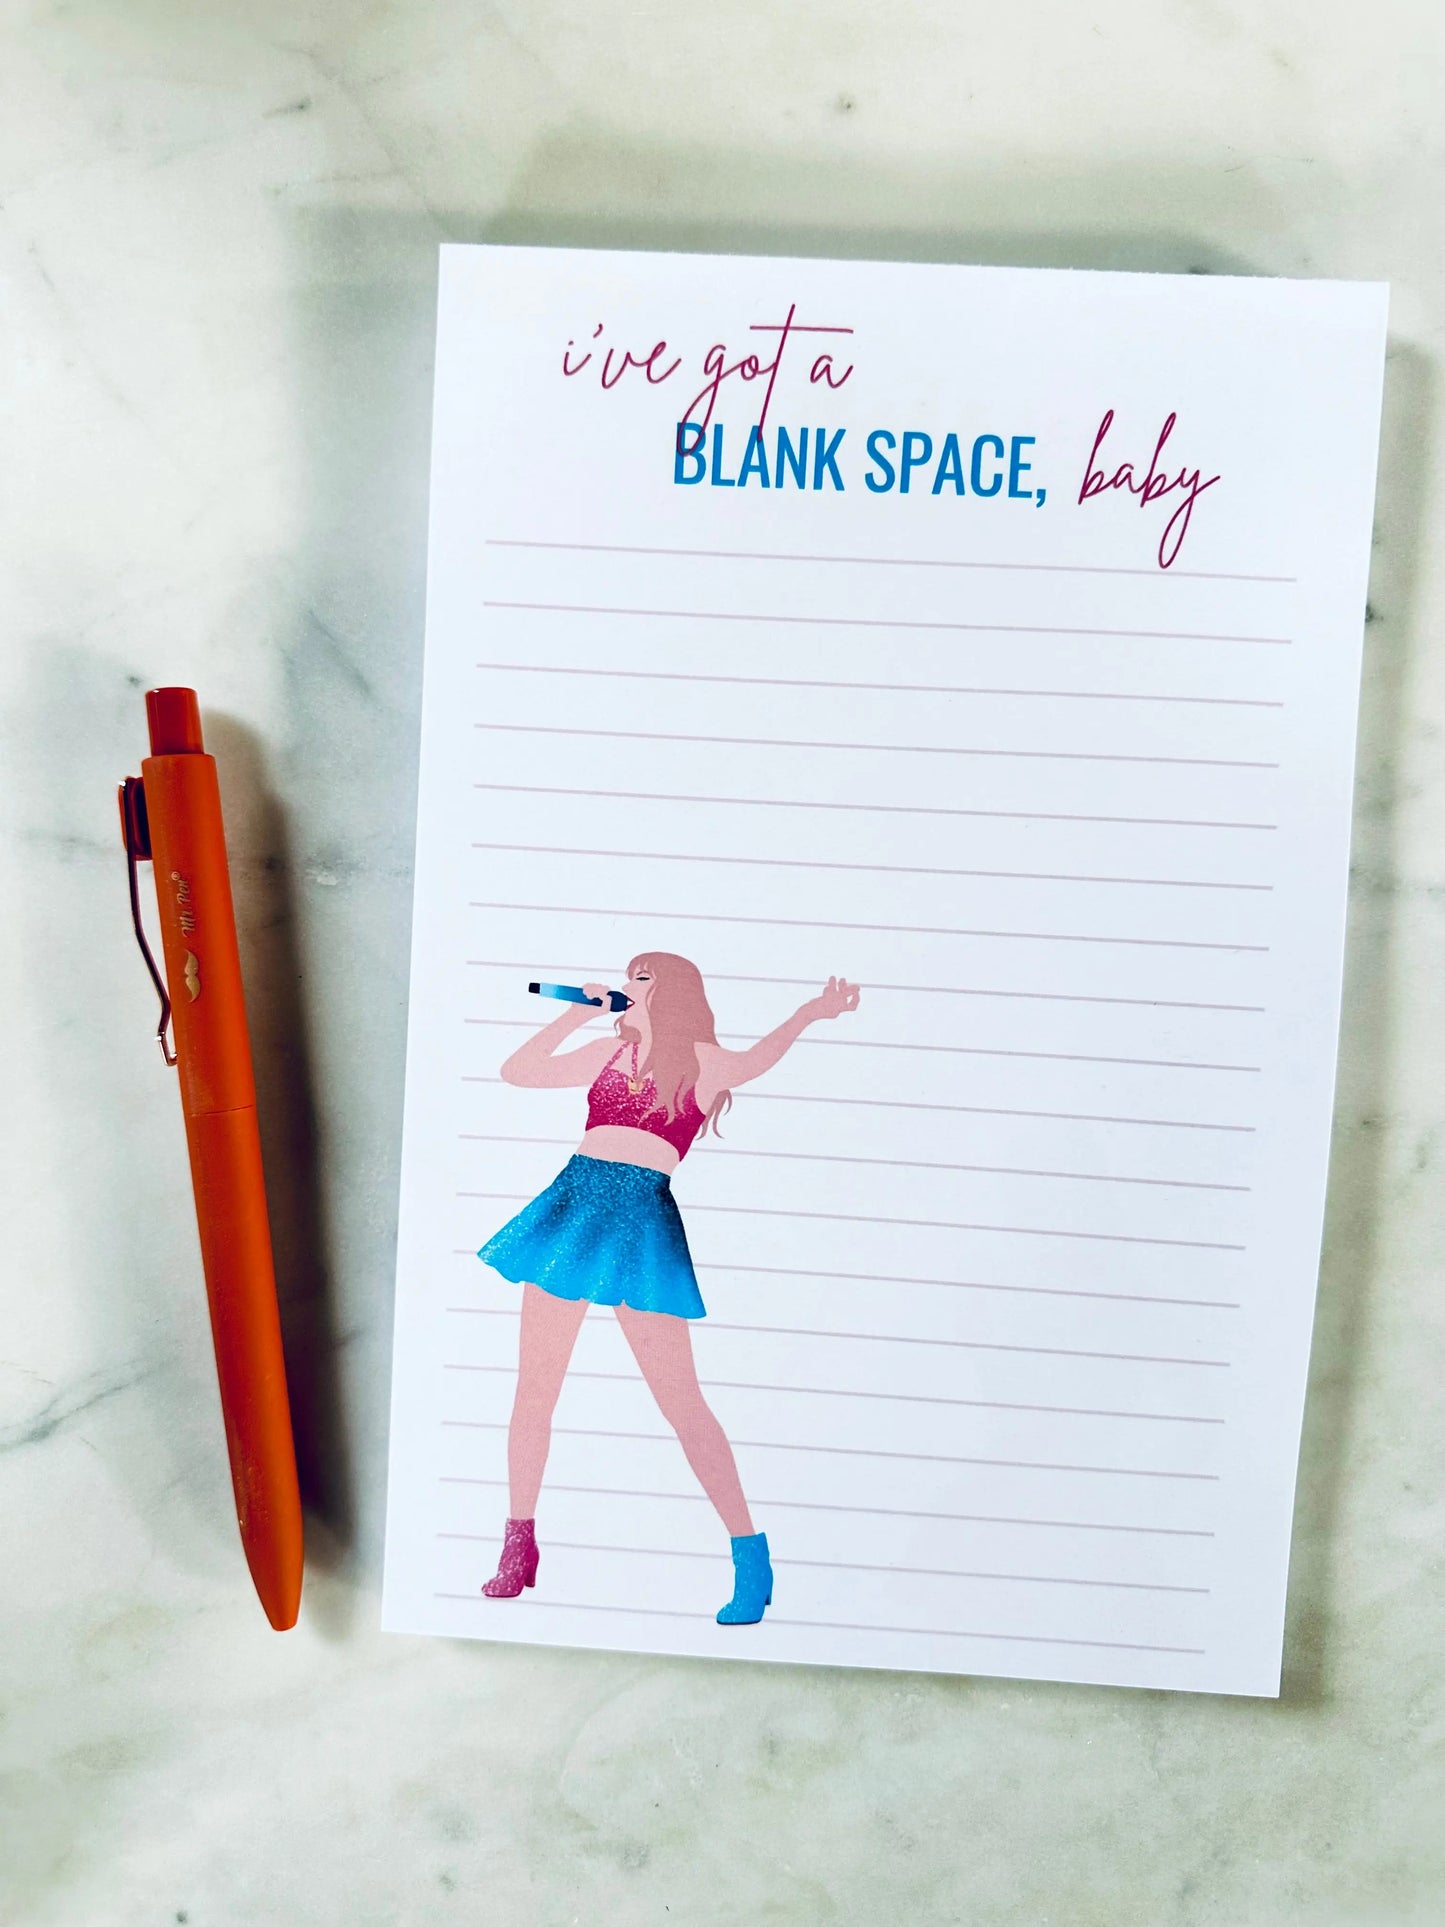 i've got a
BLANK SPACE, baby
Mr. Pen®